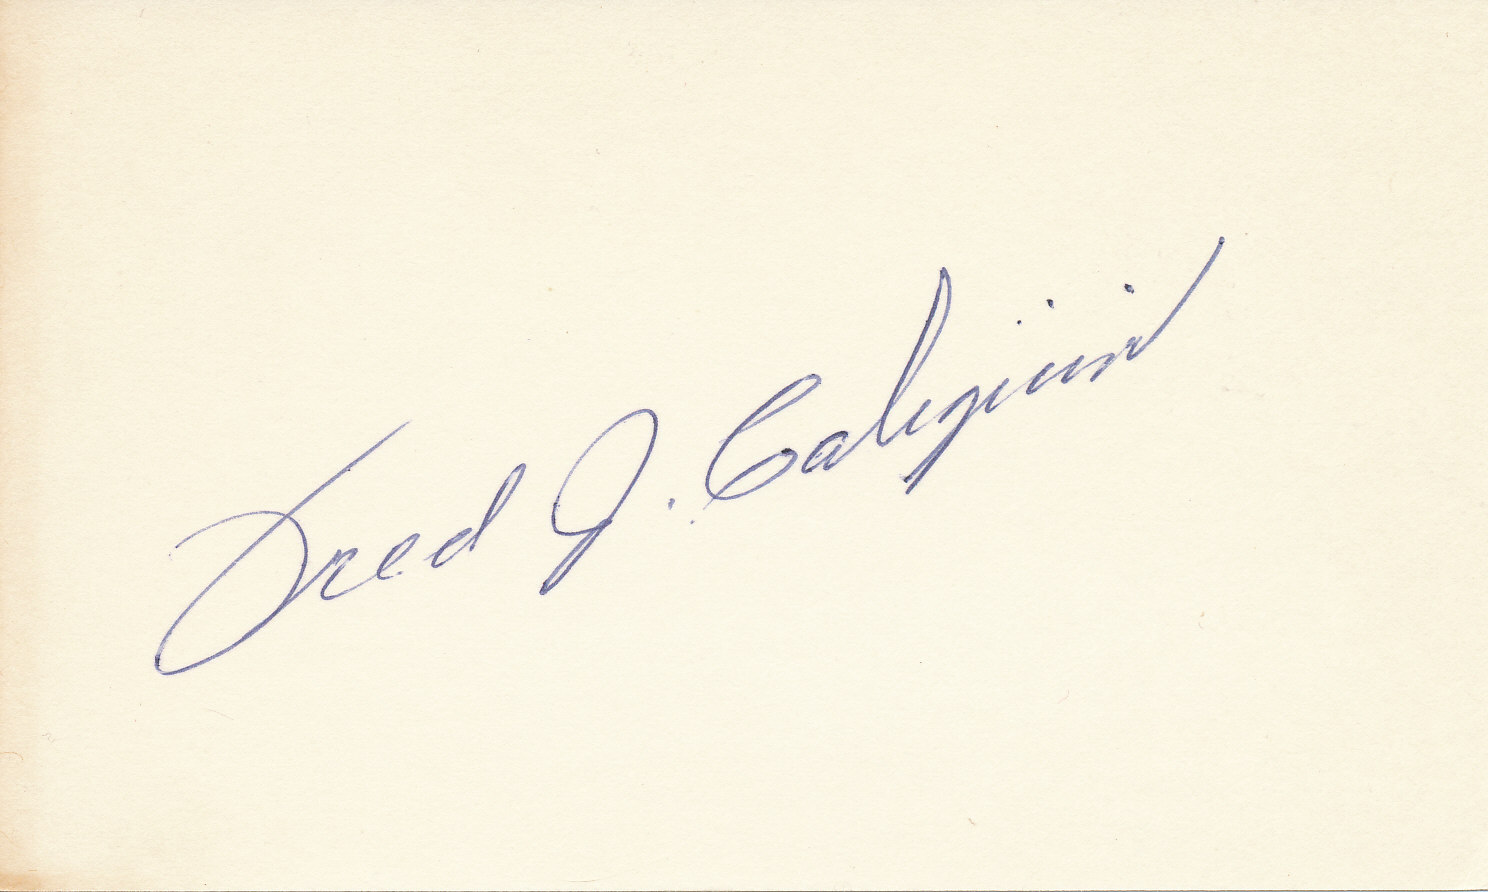 Fred J. Caligiuri